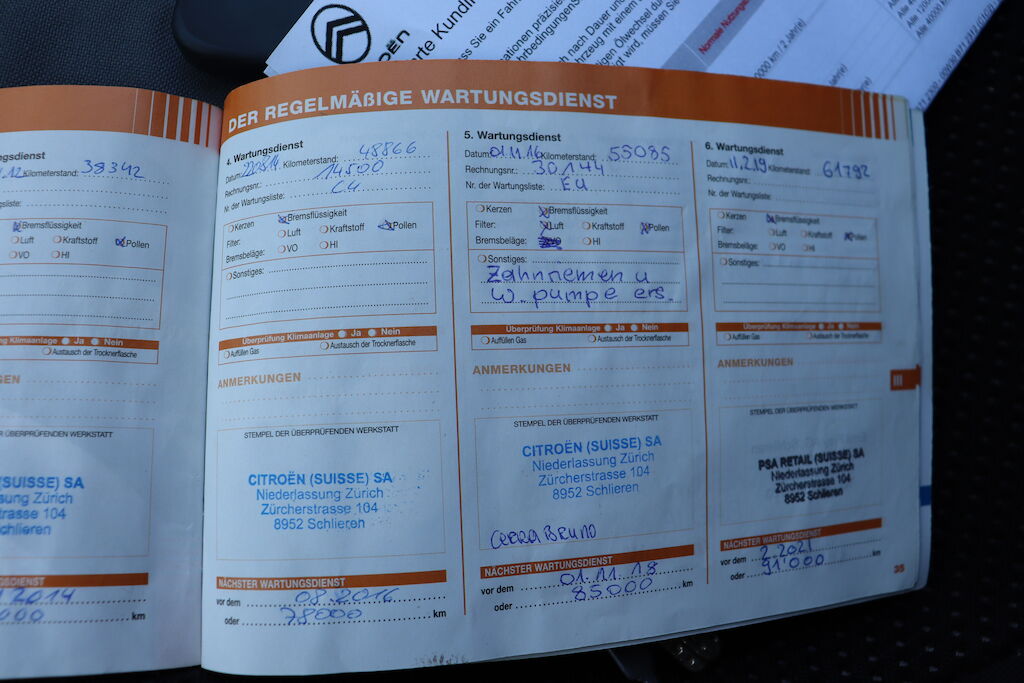 ËN
rte Kundin
ss Sie ein Fahr
ationen präzise
rbedingungen
h nach Dauer und
rzeug mit einem
igen Ölwechsel du
gt wird, müssen Sie
Normale Nutzung
0000 km / 2 Jahr(e)
Alle 40000
DER REGELMÄßIGE WARTUNGSDIENST
tungsdienst
.12 Kilometerstand: 38342
tungsliste:
Bremsflüssigkeit
Luft Kraftstoff Pollen
VO HI
g Klimaanlage Ja Nein
Austausch der Trocknerflasche
GEN
EL DER ÜBERPRÜFENDEN WERKSTATT
(SUISSE) SA
ssung Zürich
rstrasse 104
Schlieren
GSDIENST
.2014
000 km
4. Wartungsdienst
Datum: 220814 Kilometerstand: 48866
Rechnungsnr.: 14500
Nr. der Wartungsliste: C4
Kerzen Bremsflüssigkeit
Filter: Luft Kraftstoff Pollen
Bremsbeläge: VO HI
Sonstiges:
Überprüfung Klimaanlage Ja Nein
Auffüllen Gas Austausch der Trocknerflasche
ANMERKUNGEN
STEMPEL DER ÜBERPRÜFENDEN WERKSTATT
CITROËN (SUISSE) SA
Niederlassung Zürich
Zürcherstrasse 104
8952 Schlieren
NÄCHSTER WARTUNGSDIENST
vor dem 08.2016
oder 78000 km
5. Wartungsdienst
Datum: 01.11.16 Kilometerstand: 55085
Rechnungsnr.: 30144
Nr. der Wartungsliste: EU
Kerzen Bremsflüssigkeit
Filter: Luft Kraftstoff Pollen
Bremsbeläge: VO HI
Sonstiges:
Zahnriemen u
W. pumpe ers.
Überprüfung Klimaanlage Ja Nein
Auffüllen Gas Austausch der Trocknerflasche
ANMERKUNGEN
STEMPEL DER ÜBERPRÜFENDEN WERKSTATT
CITROËN (SUISSE) SA
Niederlassung Zürich
Zürcherstrasse 104
8952 Schlieren
CERRA BRUNO
NÄCHSTER WARTUNGSDIENST
vor dem 01.11.18
oder 85000 km
6. Wartungsdienst
Datum: 11.2.19 Kilometerstand: 61792
Rechnungsnr.:
Nr. der Wartungsliste:
Kerzen Bremsflüssigkeit
Filter: Luft Kraftstoff Pollen
Bremsbeläge: VO HI
Sonstiges:
Überprüfung Klimaanlage Ja Nein
Auffüllen Gas Austausch der Trocknerflasche
ANMERKUNGEN
STEMPEL DER ÜBERPRÜFENDEN WERKSTATT
PSA RETAIL (SUISSE) SA
Niederlassung Zürich
Zürcherstrasse 104
8952 Schlieren
NÄCHSTER WARTUNGSDIENST
vor dem 2.2021
oder 91'000 km
III
35